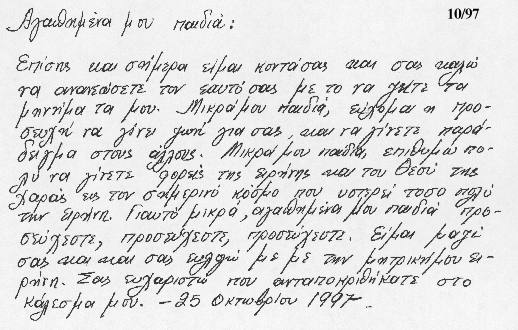 Αγαπημένα μου παιδιά:
10/97
Επίσης και σήμερα είμαι κοντάσας και σας καλώ
να ανανεώσετε τον εαυτόσας με το να ζήτε τα
μηνήματα μου. Μικράμου παιδιά, εύχομαι η προ-
σευχή να γίνει ζωή για σας, και να γίνετε παρά-
δειγμα στους άλλους. Μικράμου παιδιά, επιθυμώ πο-
λύ να γίνετε φορείς της ειρήνης και του Θεού της
χαράς εις τον σημερινό κόσμο που υστερεί τοσο πολύ
την ειρήνη. Γιαυτό μικρά, αγαπημένα μου παιδιά προ-
σεύχεστε, προσεύχεστε, προσεύχεστε. Είμαι μαζί
σας και και σας ευλογώ με με την μητρικήμου ει-
ρήνη. Σας ευχαριστώ που ανταποκριθήκατε στο
κάλεσμα μου. - 25 Οκτωβρίου 1997